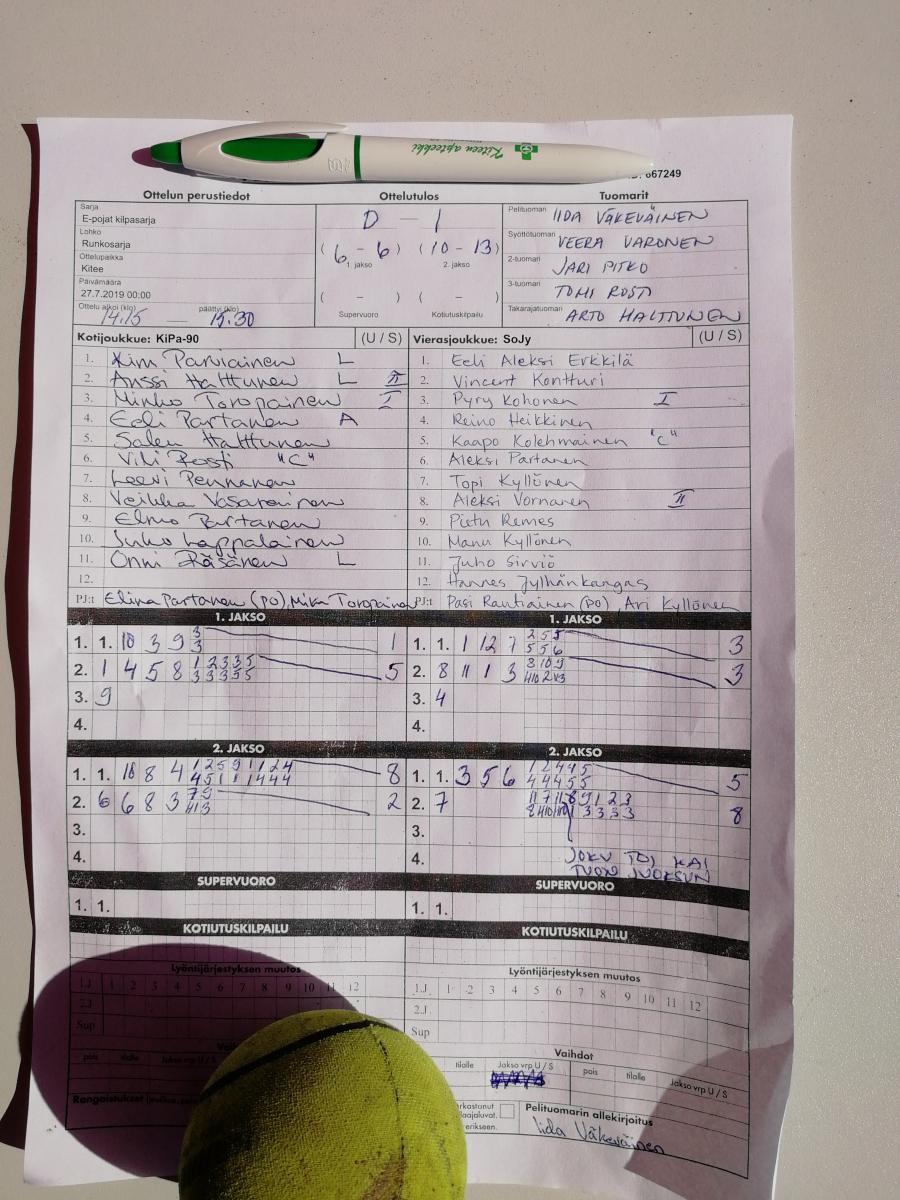 Kiteen apteekki
667249
Ottelun perustiedot Ottelutulos Tuomarit
Sarja
E-pojat kilpasarja
Lohko
Runkosarja
Ottelupaikka
Kitee
Päivämäärä
27.7.2019 00:00
Ottelu alkoi (klo) päättyi (klo)
14.15 — 15.30
0 — 1
( 6 - 6 ) ( 10 - 13 )
1. jakso 2. jakso
( - ) ( - )
Supervuoro Kotiutuskilpailu
Pelituomari IIDA VÄKEVÄINEN
Syöttötuomari VEERA VARONEN
2-tuomari JARI PITKO
3-tuomari TOMI ROSTI
Takarajatuomari ARTO HALTTUNEN
Kotijoukkue: KiPa-90 (U / S)
1. Kim Parviainen L
2. Anssi Halttunen L II
3. Minko Toropainen I
4. Eeli Partanen A
5. Halttunen
6. Vili Rosti "C"
7. Leevi Pennanen
8. Veikka Vasarainen
9. Elmo Partanen
10. Juho Lappalainen
11. Onni Räsänen L
12.
PJ:t Elina Partanen (PO), Mika Toropainen
Vierasjoukkue: SoJy (U / S)
1. Eeli Aleksi Erkkilä
2. Vincent Kontturi
3. Pyry Kohonen I
4. Reino Heikkinen
5. Kaapo Kolehmainen "C"
6. Aleksi Partanen
7. Topi Kyllönen
8. Aleksi Vornanen II
9. Pietu Remes
10. Manu Kyllönen
11. Juho Sirviö
12. Hannes Jylhänkangas
PJ:t Pasi Rautiainen (PO), Ari Kyllönen
1. JAKSO
1. 1. 10 3 9 3 1
3
2. 1 4 5 8 1 2 3 3 5 5
3 3 3 5 5
3. 9
4.
1. JAKSO
1. 1. 1 12 7 2 5 5 3
5 5 6
2. 8 11 1 3 8 10 9 3
3. 4
4.
2. JAKSO
1. 1. 10 8 4 1 2 5 9 1 1 2 4 8
2. 6 6 8 3 7 9 2
3.
4.
2. JAKSO
1. 1. 3 5 6 1 2 4 4 5 5
4 4 4 5 5
2. 7 8
3.
4. JOKU TOI KAI
TUON JUOKSUN
SUPERVUORO
1. 1.
SUPERVUORO
1. 1.
KOTIUTUSKILPAILU
KOTIUTUSKILPAILU
Lyöntijärjestyksen muutos
1.J 1 2 3 4 5 6 7 8 9 10 11 12
2.J
Sup
Lyöntijärjestyksen muutos
1.J 1 2 3 4 5 6 7 8 9 10 11 12
2.J.
Sup
pois tilalle Jakso vrp U / S
Rangaistukset
Vaihdot
tilalle Jakso vrp U / S pois tilalle Jakso vrp U / S
erikseen.
Pelituomarin allekirjoitus
Iida Väkeväinen